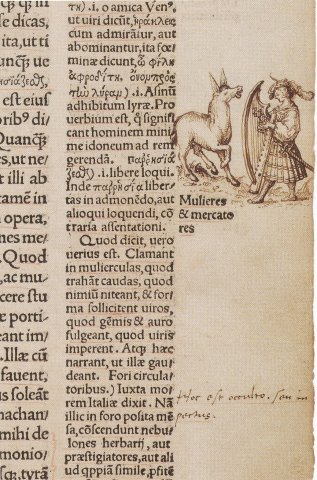 se dicas,
ita, ut ti
est eius
orib⁹ di
Quanq̃
es, ut ne/
t illi ab
tamē in
opera,
nes me/
. Quod
, ac mu/
cere stu
e porti/
eant im/
. Illæ cū
fauent,
us soleāt
nachan/
mihi de
monio/
sq;, tyrā
.i. o amica Ven⁹,
ut uiri dicūt, ἡράκλεις
cum admirātur, aut
abominantur, ita fœ
minæ dicunt, ὦ φίλη
ἀφροδίτη. ὄνος πρὸς
τὴν λύραν) .i. Asinū
adhibitum lyræ. Pro
uerbium est, q̃ signifi
cant hominem mini
me idoneum ad rem
gerendā. παῤῥησιά
ζεσθαι) .i. libere loqui.
Inde παῤῥησία liber/
tas in admonēdo, aut
alioqui loquendi, cō
traria assentationi.
Quod dicit, uero
uerius est. Clamant
in mulierculas, quod
trahāt caudas, quod
nimiū niteant, & for/
ma sollicitent uiros,
quod gēmis & auro
fulgeant, quod uiris
imperent. Atq; hæc
narrant, ut illæ gau/
deant. Fori circula/
toribus.) Iuxta mo/
rem Italiæ dixit. Nā
illic in foro posita mē
sa, cōscendunt nebu/
lones herbarij, aut
præstigiatores, aut ali
ud q̃ppiā simile, p̄fitē
Mulieres
& mercato
res
hoc est occulto. seu in
pectus.